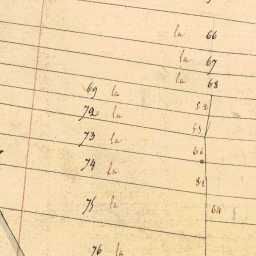 la 66
la 67
la 68
69 la 52
72 la 53
73 la 66
74 la 82
75 la 64
76 la